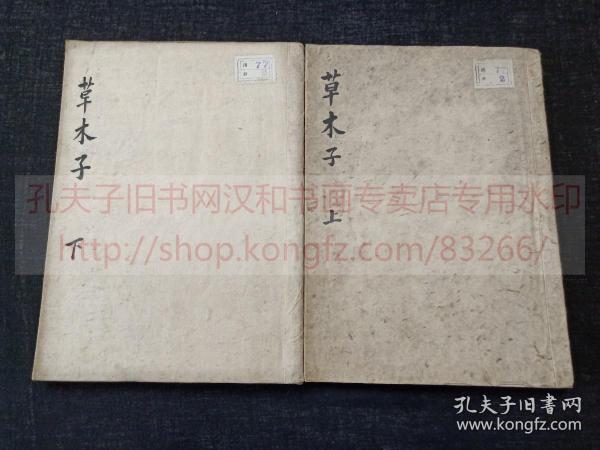 草木子 上
77
2
草木子 下
77
孔夫子旧书网汉和书画专卖店专用水印
http://shop.kongfz.com/83266/
孔夫子旧书网
www.kongfz.com